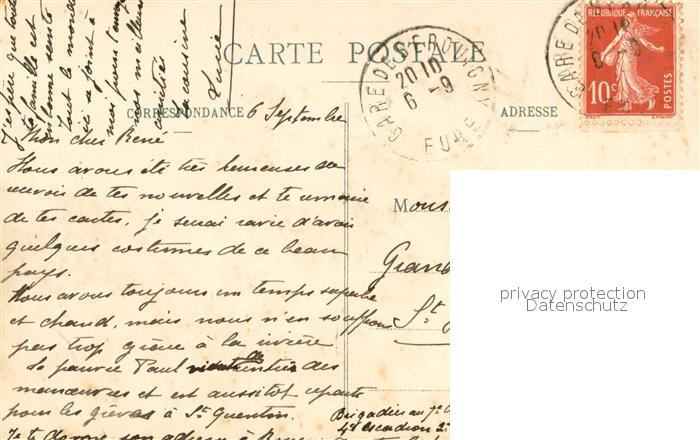 CARTE POSTALE
CORRESPONDANCE
ADRESSE
RÉPUBLIQUE FRANÇAISE
10c
POSTES
GARE DE
20 10
6 - 9
EURE
GARE DE
6 Septembre
Mon cher René
Nous avons été très heureuses de
recevoir de tes nouvelles et te remercie
de tes cartes, je serai ravie d'avoir
quelques costumes de ce beau
pays.
Nous avons toujours un temps superbe
et chaud, mais nous n'en souffrons
pas trop grâce à la rivière
Le pauvre Paul des
manœuvres et est aussitôt reparti
pour les grèves à St Quentin.
Je te donne son adresse à
Brigadier au 7e
4e escadron 2e
J'espère que toute
ta famille est
en bonne santé
tout le monde
ici se joint à
moi pour t'envoyer
nos meilleures
amitiés
ta cousine
Lucie
Mons
Gran
St
privacy protection
Datenschutz